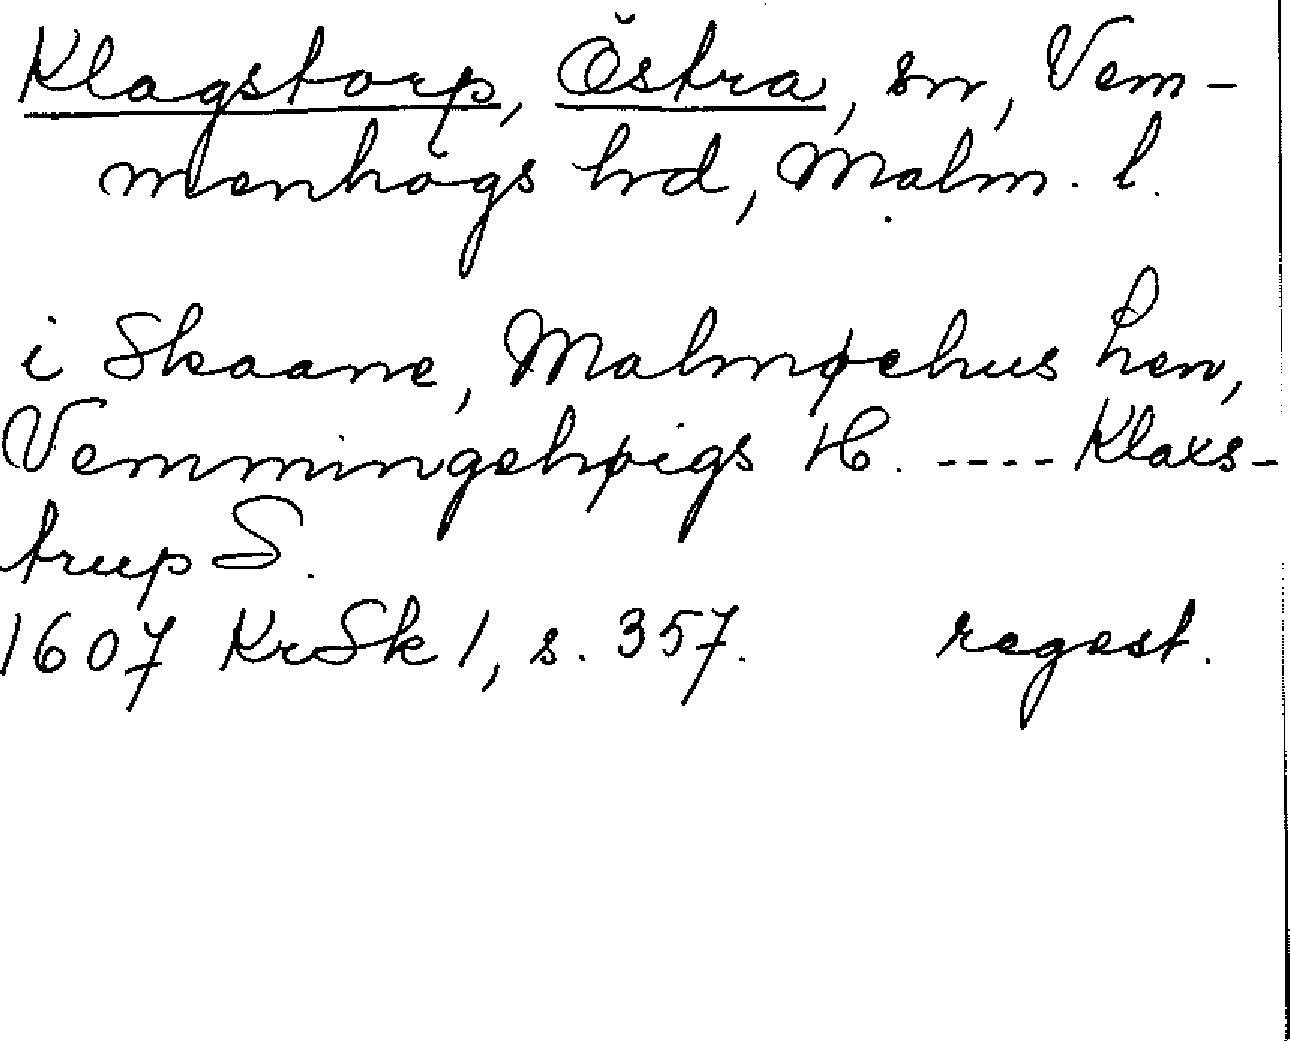 Klagstorp, Östra, sn, Vem-
menhögs hrd, Malm. l.
i Skaane, Malmøehus Len,
Vemmingehøigs H. ---- Klaxs-
trup S.
1607 KrSk 1, s. 357. regest.